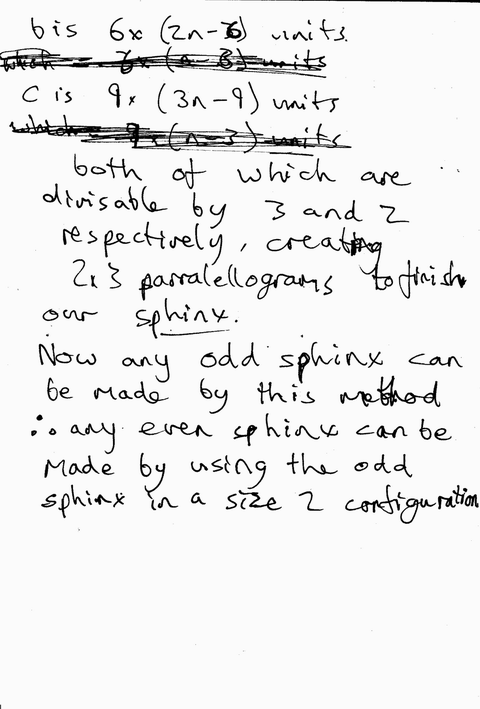 b is 6 x (2n-6) units.
which = 6 x (n-3) units
C is 9 x (3n-9) units
which = 9 x (n-3) units
both of which are
divisable by 3 and 2
respectively, creating
2x3 parralellograms to finish
our sphinx.
Now any odd sphinx can
be made by this method
∴ any even sphinx can be
made by using the odd
sphinx in a size 2 configuration